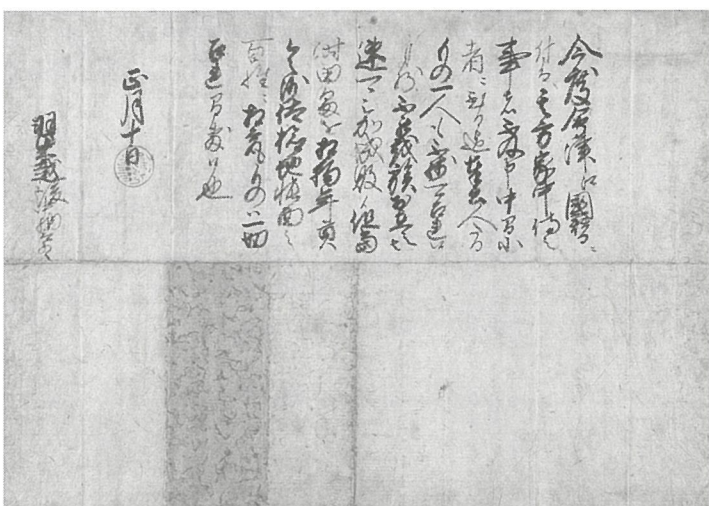 今度會津江國替ニ
付而其方家中侍之
事者不及申中間小
者ニ至る迄奉公人たる
もの一人も不残可召連候
族於在之者
速可被加成敗候但當
時田畠を相拘年貢
令沙汰検地帳面之
百姓ニ相究ものハ一切
召連間敷候也
正月十日
羽柴越後中納言とのへ